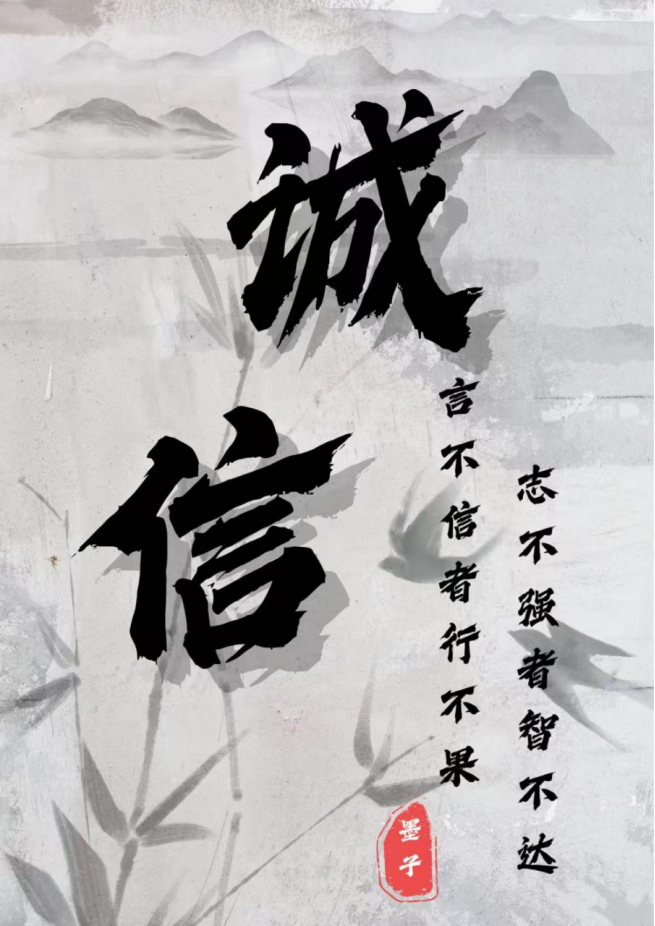 诚
信
志不强者智不达
言不信者行不果
墨子